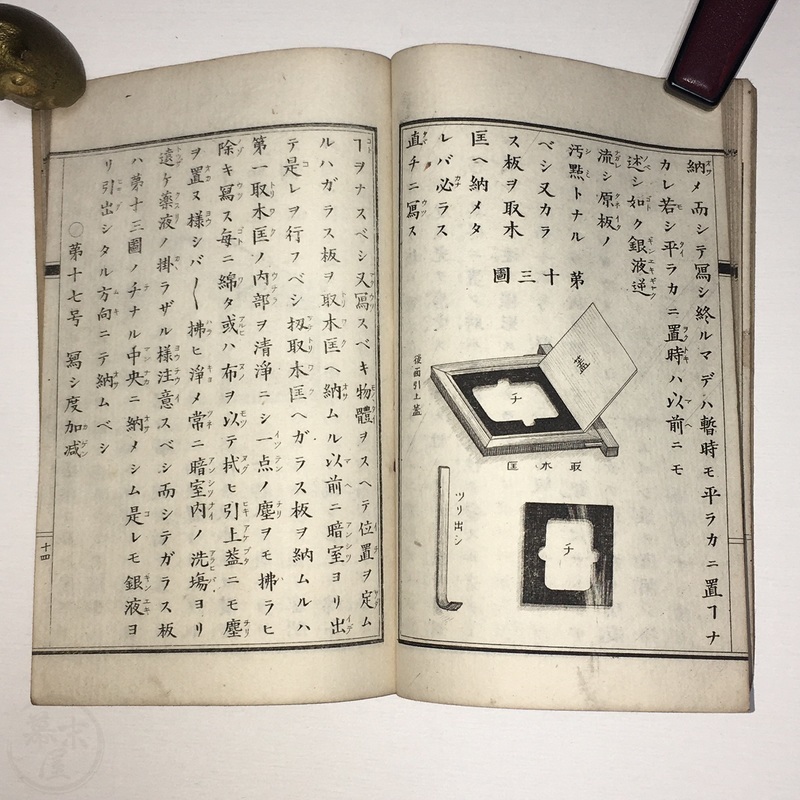 納メ而シテ寫シ終ルマデハ暫時モ平ラカニ置ヿナ
カレ若シ平ラカニ置時ハ以前ニモ
述シ如ク銀液逆
流シ原板ノ
汚點トナル
ベシ又カラ
ス板ヲ取木
匡ヘ納メタ
レバ必ラス
直チニ寫ス
第十三圖
蓋
チ
後面引上蓋
取木匡
ツリ出シ
チ
ヿヲナスベシ又寫スベキ物體ヲスヘテ位置ヲ定ム
ルハガラス板ヲ取木匡ヘ納ムル以前ニ暗室ヨリ出
テ是レヲ行フベシ扨取木匡ヘガラス板ヲ納ムルハ
第一取木匡ノ内部ヲ清淨ニシ一点ノ塵ヲモ拂ラヒ
除キ寫ス毎ニ綿タ或ハ布ヲ以テ拭ヒ引上蓋ニモ塵
ヲ置ヌ様シバ〱拂ヒ淨メ常ニ暗室内ノ洗塲ヨリ
遠ケ薬液ノ掛ラザル様注意スベシ而シテガラス板
ハ第十三圖ノチナル中央ニ納メシム是レモ銀液ヨ
リ引出シタル方向ニテ納ムベシ
〇第十七号 寫シ度加減
十四
幕末屋